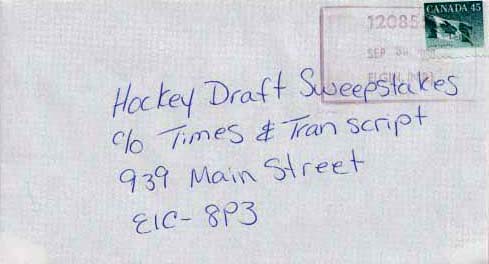 CANADA 45
12085
SEP
ELGIN
Hockey Draft Sweepstakes
c/o Times & Transcript
939 Main Street
E1C-8P3